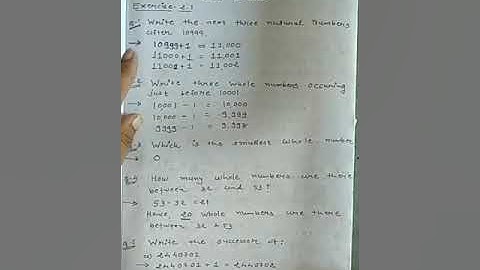 Exercise-2.1
Q-1 Write the next three natural numbers
after 10999.
→ 10999+1 = 11,000
11000+1 = 11,001
11001+1 = 11,002
Write three whole numbers occuring
just before 10001
→ 10001 - 1 = 10,000
10,000 - 1 = 9,999
9999 - 1 = 9,998
Which is the smallest whole number
→ 0
Q-4 How many whole numbers are there
between 32 and 53?
→ 53-32 = 21
Hence, 20 whole numbers are there
between 32 & 53.
Q-5 Write the successor of:
a) 2440701
→ 2440701 + 1 = 2440702